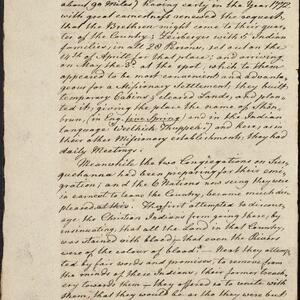 about 90 Miles) Having early in the Year 1772.
with great earnestness renewed the request,
that the Brethren might come to this quar-
ter of the Country; Zeisberger with 5 Indian
families, in all 28 Persons, set out on the
14th of April for that place; and arriving
on May the 3d at the spot, which to them
appeared to be most convenient and advanta-
geous for a Missionary Settlement, they built
temporary Cabins, cleared Lands, and plan-
ted it; giving the place the name of Shön-
brun, (in Eng. fine Spring) and in the Indian
language Welhik Thuppek;) and here, as in
their other Missionary establishments, they had
daily Meetings.
Meanwhile the two Congregations on Sus-
quehanna had been preparing for their emi-
gration; and the 6 Nations now seeing they were
in earnest to leave the Country, became much dis-
pleased at this. They first attempted to discour-
age the Christian Indians from going there, by
insinuating, that all the Land in that Country,
was stained with blood; that even the Rivers
were of the colour of blood. Next they attemp-
ted by fair words and promises, to remove from
the minds of these Indians, their former treach-
ery towards them they offered to unite with
them, that they would be as they were but